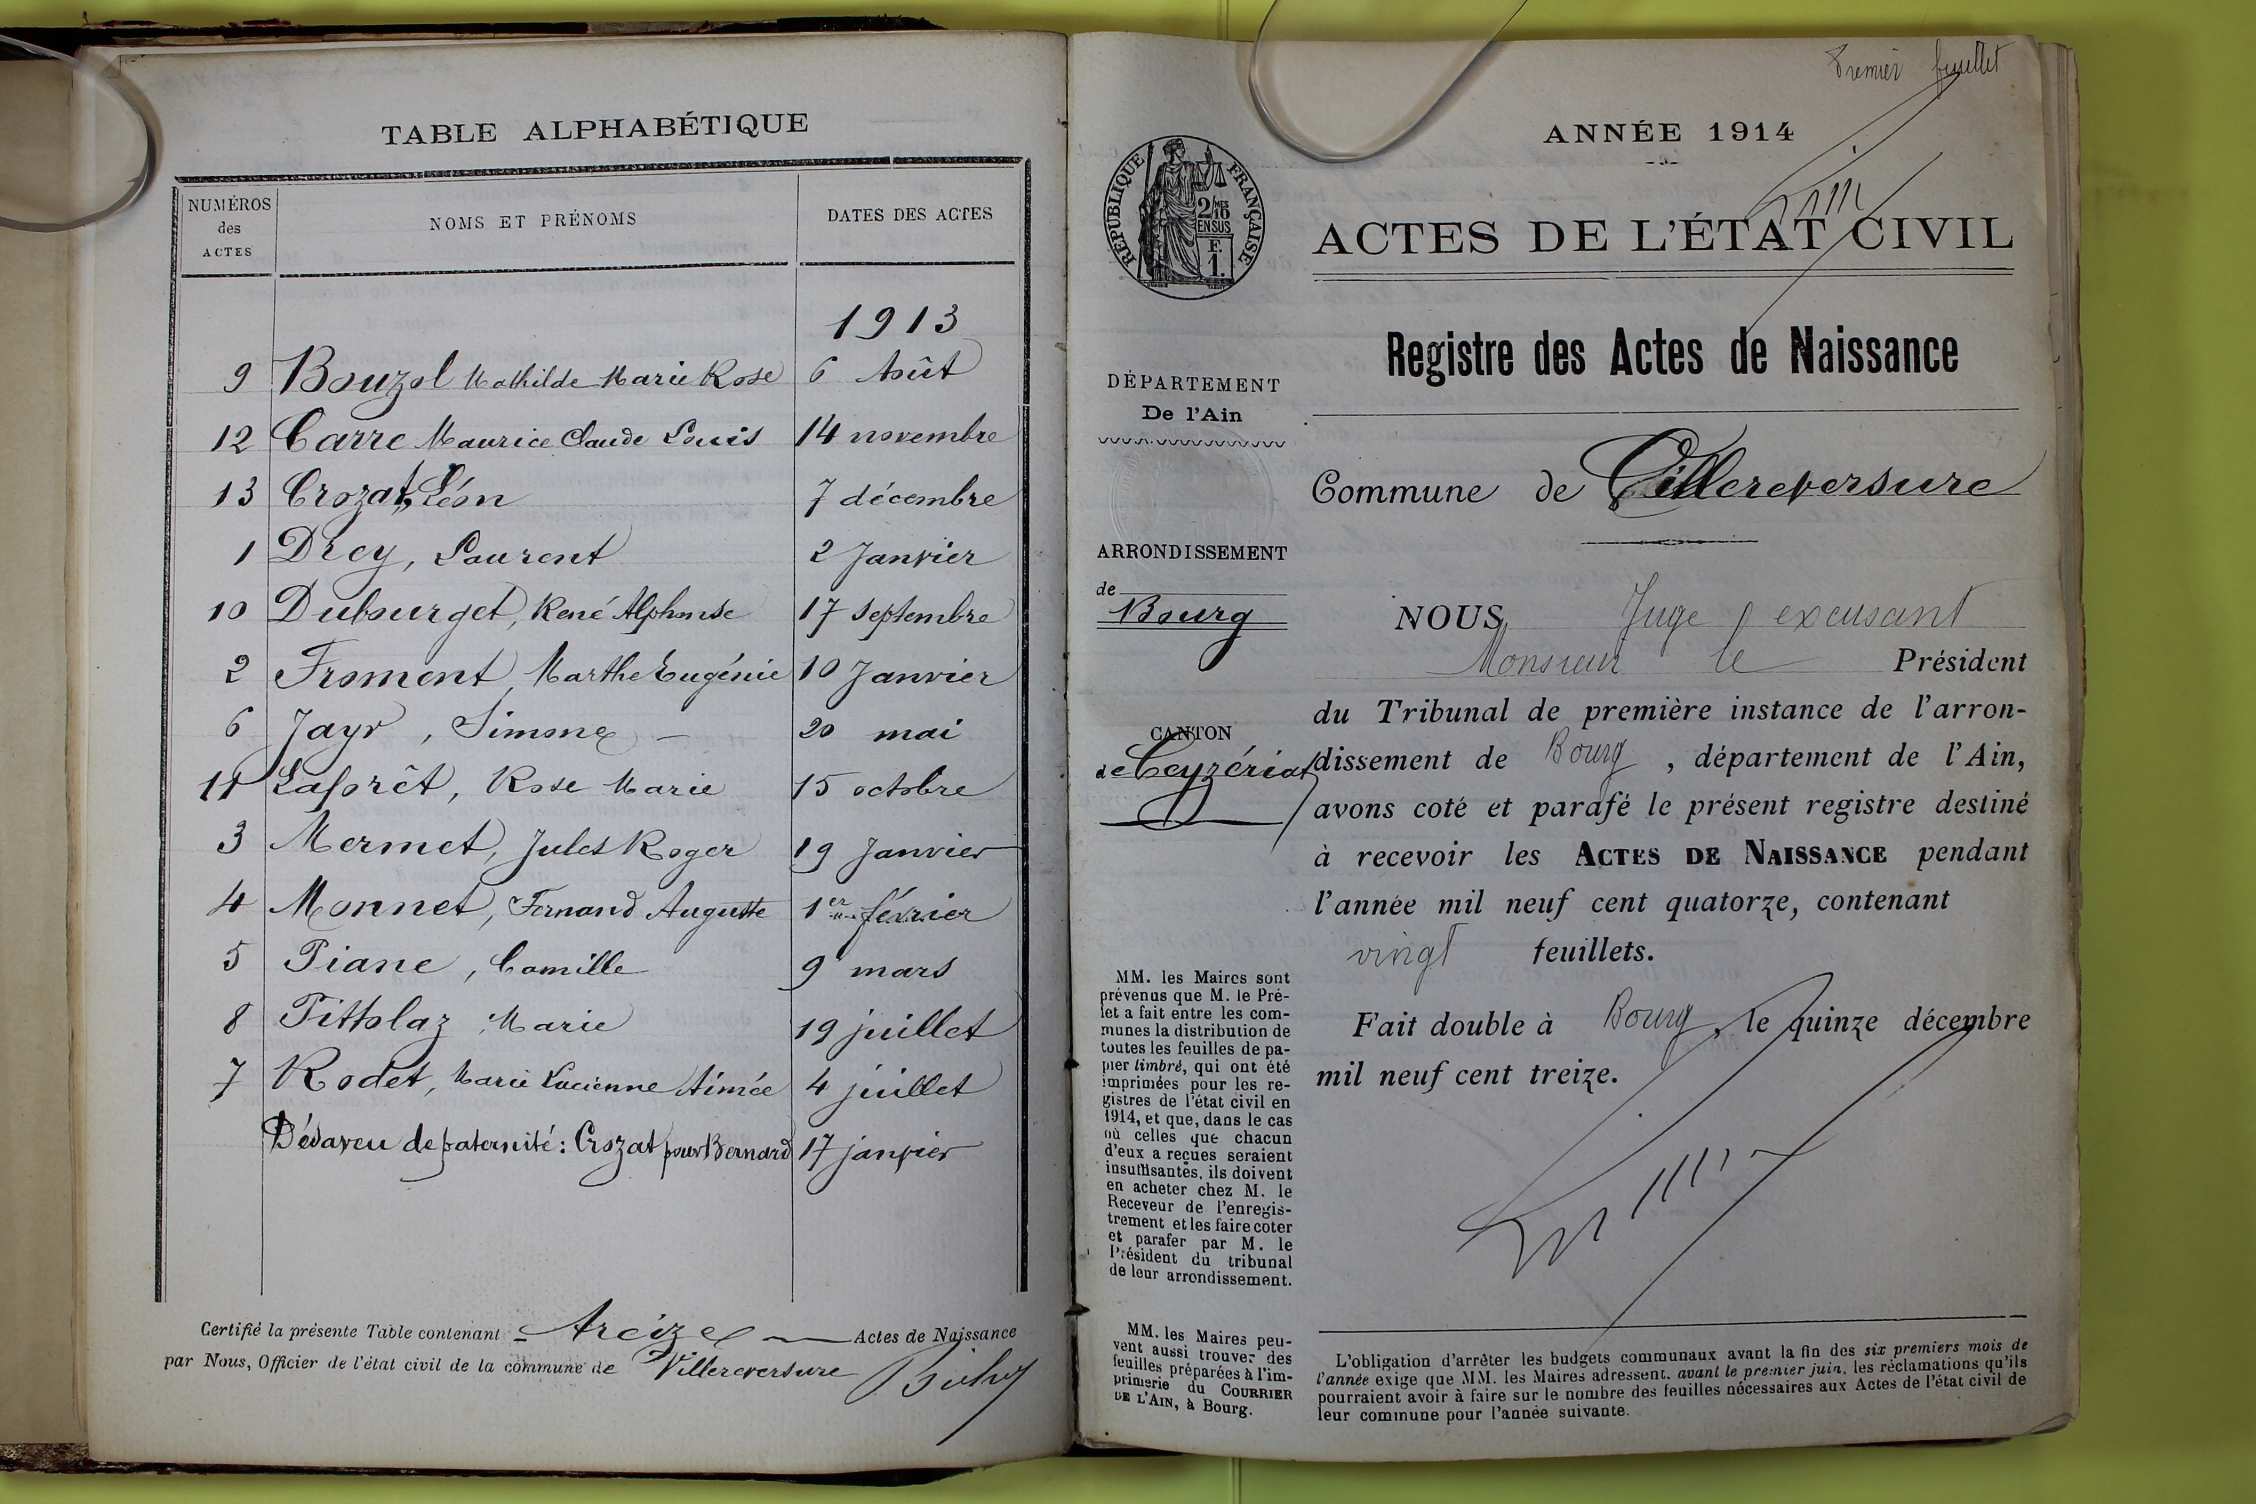 TABLE ALPHABÉTIQUE
NUMÉROS des ACTES
NOMS ET PRÉNOMS
DATES DES ACTES
1913
9 Bouzol Mathilde Marie Rose 6 Août
12 Carre Maurice Claude Louis 14 novembre
13 Crozat, Léon 7 décembre
1 Drey, Laurent 2 Janvier
10 Dubourget, René Alphonse 17 septembre
2 Froment, Marthe Eugénie 10 Janvier
6 Jayr, Simone 20 mai
11 Laforêt, Rose Marie 15 octobre
3 Mermet, Jules Roger 19 Janvier
4 Monnet, Fernand Auguste 1er février
5 Piane, Camille 9 mars
8 Pittolaz, Marie 19 juillet
7 Rodet, Marie Lucienne Aimée 4 juillet
Désaveu de paternité : Crozat pour Bernard 17 janvier
Certifié la présente Table contenant Treize Actes de Naissance
par Nous, Officier de l'état civil de la commune de Villereversure
Premier feuillet
ANNÉE 1914
RÉPUBLIQUE FRANÇAISE
2/10MES
EN SUS
F.
1.
ACTES DE L'ÉTAT CIVIL
Registre des Actes de Naissance
DÉPARTEMENT
De l'Ain
Commune de Villereversure
ARRONDISSEMENT
de
Bourg
CANTON
de Ceyzériat
NOUS Juge excusant
Monsieur le Président
du Tribunal de première instance de l'arron-
dissement de Bourg, département de l'Ain,
avons coté et parafé le présent registre destiné
à recevoir les ACTES DE NAISSANCE pendant
l'année mil neuf cent quatorze, contenant
vingt feuillets.
Fait double à Bourg, le quinze décembre
mil neuf cent treize.
MM. les Maires sont
prévenus que M. le Pré-
fet a fait entre les com-
munes la distribution de
toutes les feuilles de pa-
pier timbré, qui ont été
imprimées pour les re-
gistres de l'état civil en
1914, et que, dans le cas
où celles que chacun
d'eux a reçues seraient
insuffisantes, ils doivent
en acheter chez M. le
Receveur de l'enregis-
trement et les faire coter
et parafer par M. le
Président du tribunal
de leur arrondissement.
MM. les Maires peu-
vent aussi trouver des
feuilles préparées à l'im-
primerie du COURRIER
DE L'AIN, à Bourg.
L'obligation d'arrêter les budgets communaux avant la fin des six premiers mois de
l'année exige que MM. les Maires adressent, avant le premier juin, les réclamations qu'ils
pourraient avoir à faire sur le nombre des feuilles nécessaires aux Actes de l'état civil de
leur commune pour l'année suivante.